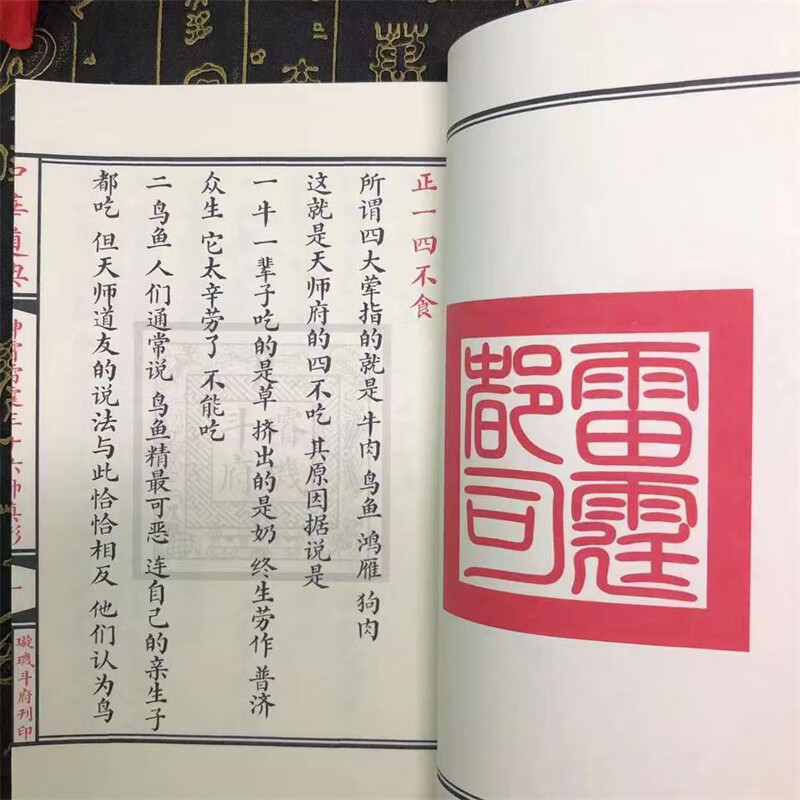 雷霆
都司
正一四不食
所谓四大荤指的就是 牛肉 鸟鱼 鸿雁 狗肉
这就是天师府的四不吃 其原因据说是
一 牛一辈子吃的是草 挤出的是奶 终生劳作 普济
众生 它太辛劳了 不能吃
二 鸟鱼 人们通常说 鸟鱼精最可恶 连自己的亲生子
都吃 但天师道友的说法与此恰恰相反 他们认为鸟
中華道典
神霄雷霆三十六帅真形
一
璇璣斗府刊印